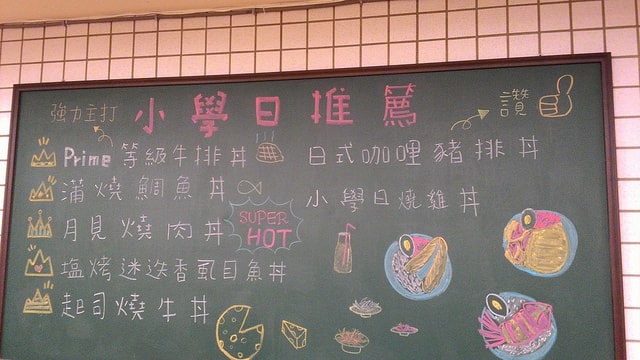 強力主打
小學日推薦
讚
Prime等級牛排丼
蒲燒鯛魚丼
月見燒肉丼
塩烤迷迭香虱目魚丼
起司燒牛丼
日式咖哩豬排丼
小學日燒雞丼
SUPER
HOT